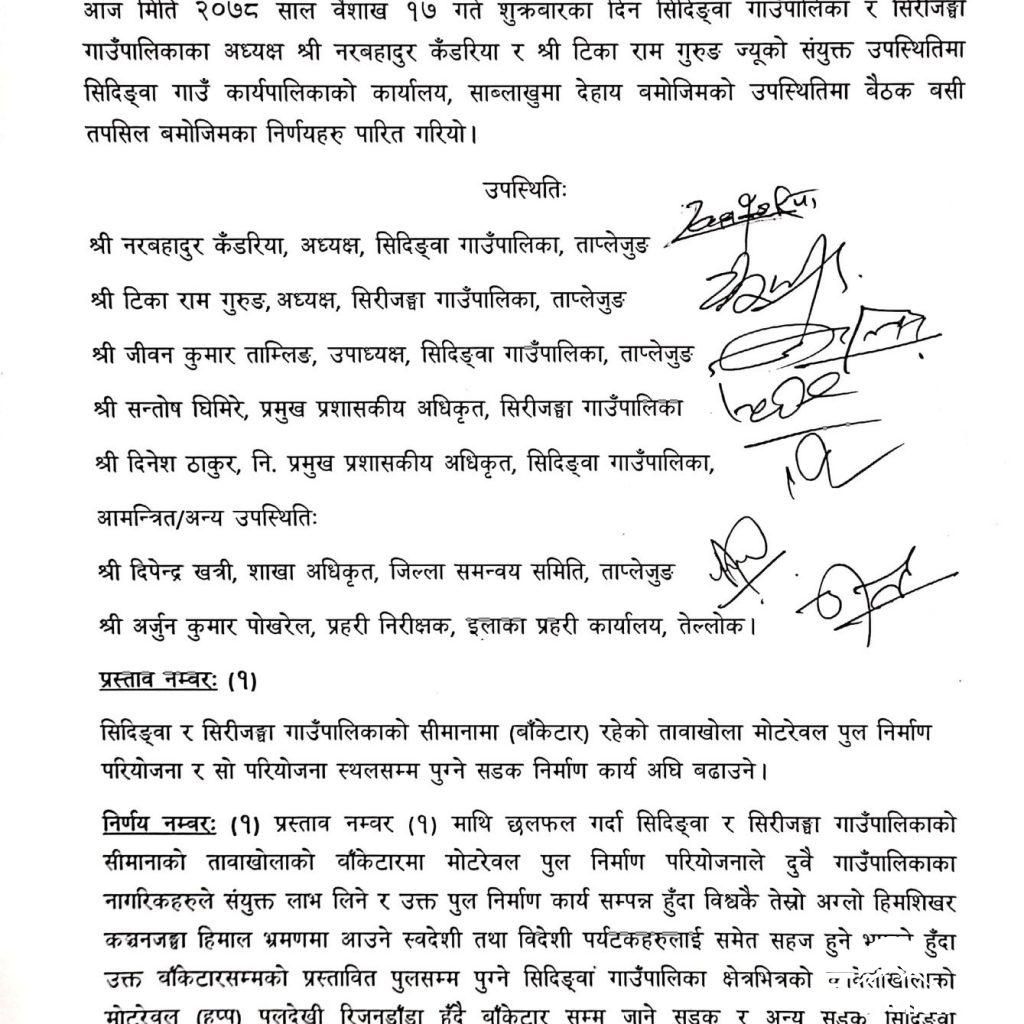 आज मिति २०७८ साल वैशाख १७ गते शुक्रबारका दिन सिदिङ्वा गाउँपालिका र सिरीजङ्घा
गाउँपालिकाका अध्यक्ष श्री नरबहादुर कँडरिया र श्री टिका राम गुरुङ ज्यूको संयुक्त उपस्थितिमा
सिदिङ्वा गाउँ कार्यपालिकाको कार्यालय, साब्लाखुमा देहाय बमोजिमको उपस्थितिमा बैठक बसी
तपसिल बमोजिमका निर्णयहरु पारित गरियो।
उपस्थितिः
श्री नरबहादुर कँडरिया, अध्यक्ष, सिदिङ्वा गाउँपालिका, ताप्लेजुङ
श्री टिका राम गुरुङ, अध्यक्ष, सिरीजङ्घा गाउँपालिका, ताप्लेजुङ
श्री जीवन कुमार ताम्लिङ, उपाध्यक्ष, सिदिङ्वा गाउँपालिका, ताप्लेजुङ
श्री सन्तोष घिमिरे, प्रमुख प्रशासकीय अधिकृत, सिरीजङ्घा गाउँपालिका
श्री दिनेश ठाकुर, नि. प्रमुख प्रशासकीय अधिकृत, सिदिङ्वा गाउँपालिका,
आमन्त्रित/अन्य उपस्थितिः
श्री दिपेन्द्र खत्री, शाखा अधिकृत, जिल्ला समन्वय समिति, ताप्लेजुङ
श्री अर्जुन कुमार पोखरेल, प्रहरी निरीक्षक, इलाका प्रहरी कार्यालय, तेल्लोक।
प्रस्ताव नम्बरः (१)
सिदिङ्वा र सिरीजङ्घा गाउँपालिकाको सीमानामा (बाँकेटार) रहेको तावाखोला मोटरेवल पुल निर्माण
परियोजना र सो परियोजना स्थलसम्म पुग्ने सडक निर्माण कार्य अघि बढाउने।
निर्णय नम्बरः (१) प्रस्ताव नम्बर (१) माथि छलफल गर्दा सिदिङ्वा र सिरीजङ्घा गाउँपालिकाको
सीमानाको तावाखोलाको बाँकेटारमा मोटरेवल पुल निर्माण परियोजनाले दुवै गाउँपालिकाका
नागरिकहरुले संयुक्त लाभ लिने र उक्त पुल निर्माण कार्य सम्पन्न हुँदा विश्वकै तेस्रो अग्लो हिमशिखर
कञ्चनजङ्घा हिमाल भ्रमणमा आउने स्वदेशी तथा विदेशी पर्यटकहरुलाई समेत सहज हुने हुँदा
उक्त बाँकेटारसम्मको प्रस्तावित पुलसम्म पुग्ने सिदिङ्वां गाउँपालिका क्षेत्रभित्रको
मोटरेवल (हप्प) पुलदेखी रिजनडाँडा हुँदै बाँकेटार सम्म जाने सडक र अन्य सडक सिदिङ्वा